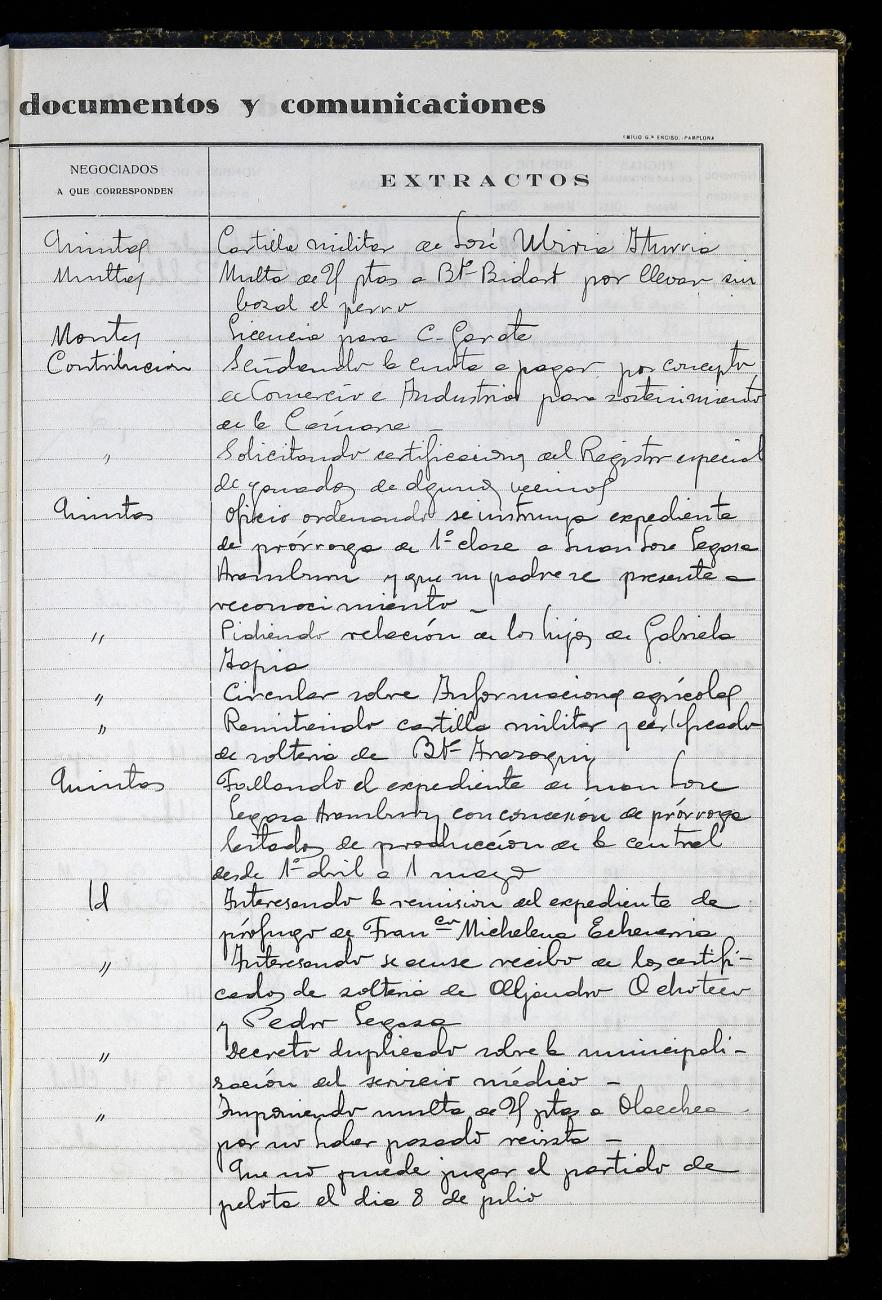 documentos y comunicaciones
EMILIO G.ª ENCISO.-PAMPLONA
NEGOCIADOS
A QUE CORRESPONDEN
EXTRACTOS
Quintas Cartilla militar de José Iturria
Multas Multa de ptas a Bte Bidart por llevar sin
bozal el perro
Montes Licencia para C. Garate
Contribución Señalando la cuota a pagar por concepto
de Comercio e Industria para sostenimiento
de la Cámara -
" Solicitando certificaciones del Registro especial
de ganados de algunos vecinos
Quintas Oficio ordenando se instruya expediente
de prórroga de 1ª clase a Juan José Legasa
Aramburu y que su padre se presente a
reconocimiento -
" Pidiendo relación de los hijos de Gabriela
Tapia
" Circular sobre Informaciones agrícolas
" Remitiendo cartilla militar y certificado
de solteria de Bte
Quintas Fallando el expediente de Juan José
Legasa Aramburu con concesión de prórroga
listados de producción de la central
desde 1º abril a 1 mayo
Id Interesando la remision del expediente de
prófugo de Franco Michelena Echeverria
" Interesando se acuse recibo de los certifi-
cados de solteria de Alejandro Ochoteco
y Pedro Legasa
" Decreto duplicado sobre la municipali-
zación del servicio médico -
" Imponiendo multa de ptas a Olaechea
por no haber pasado revista -
Que no puede jugar el partido de
pelota el dia 8 de julio